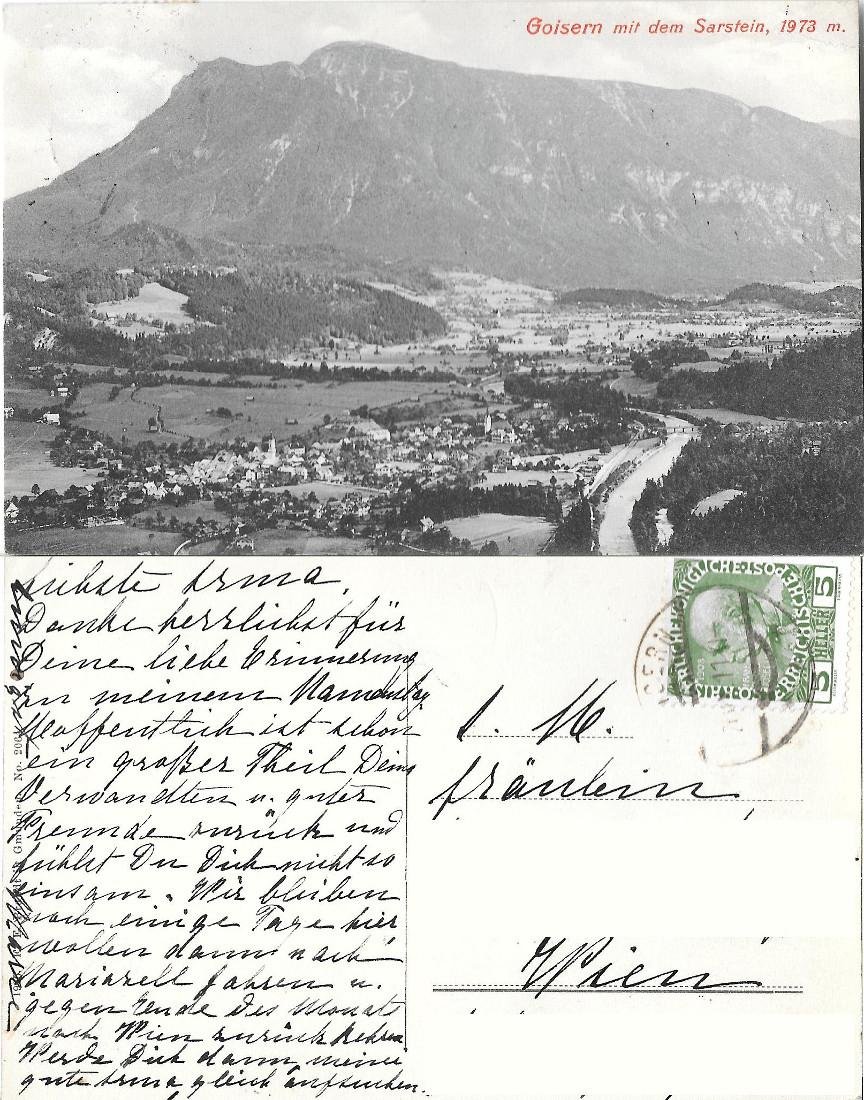 Goisern mit dem Sarstein, 1973 m.
Liebste Irma,
Danke herzlichst für
Deine liebe Erinnerung
zu meinem Namenstag
Hoffentlich ist schon
ein großer Theil Deiner
Verwandten u. guter
Freunde zurück und
fühlst Du Dich nicht so
einsam. Wir bleiben
noch einige Tage hier
wollen dann nach
Mariazell fahren u.
gegen Ende des Monats
nach Wien zurückkehren
Werde Dich dann, meine
gute Irma gleich aufsuchen.
KAISERLICHE KÖNIGLICHE ÖSTERREICHISCHE POST
5 HELLER 5
Fräulein
Wien